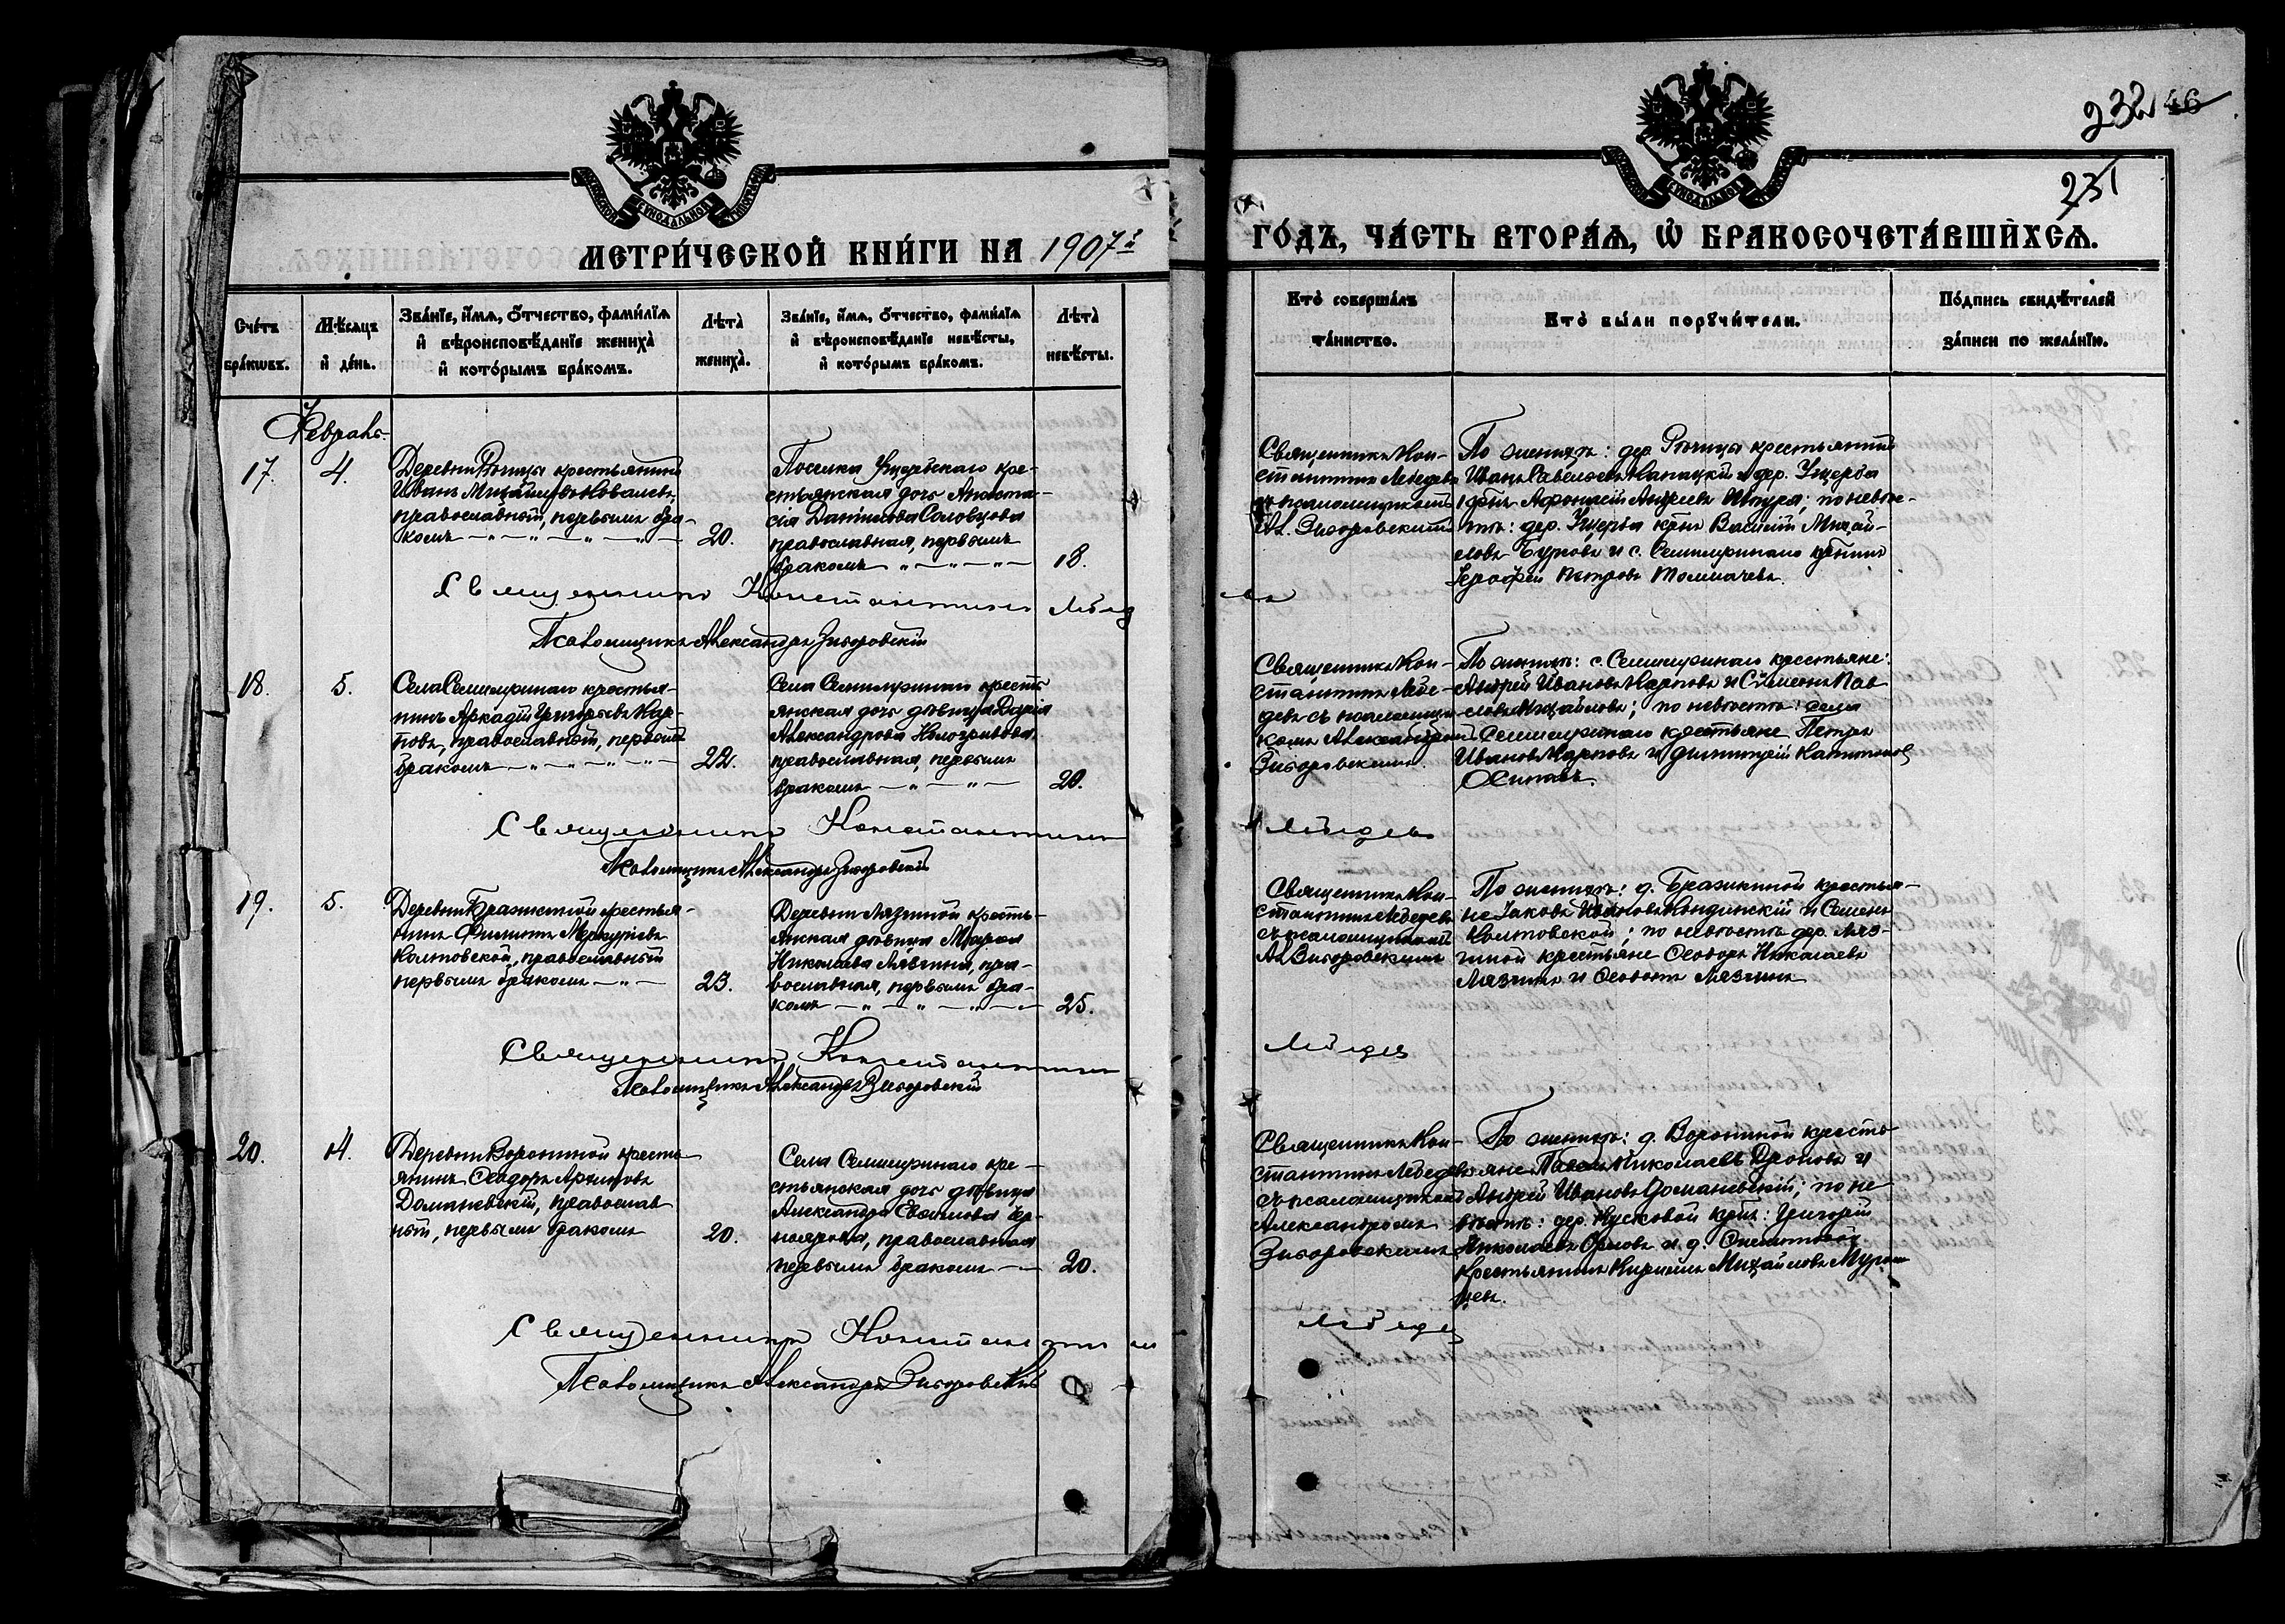 232 46
231
МЕТРИ́ЧЕСКОЙ КНИ́ГИ НА 1907й
ГО́ДЪ, ЧА́СТЬ ВТОРА́Ѧ, Ѽ БРАКОСОЧЕТА́ВШИХСѦ.
Сче́тъ бра́кѡвъ.
Мѣ́сѧцъ и҆ де́нь.
Зва́нїе, и҆́мѧ, ѻ҆́тчество, фами́лїѧ
и҆ вѣроисповѣ́данїе жениха̀
и҆ кото́рымъ бра́комъ.
Лѣ́та̀ жениха̀.
Зва́нїе, и҆́мѧ, ѻ҆́тчество, фами́лїѧ
и҆ вѣроисповѣ́данїе невѣ́сты,
и҆ кото́рымъ бра́комъ.
Лѣ́та̀ невѣ́сты.
Кто̀ соверша́лъ та́инство.
Кто̀ бы́ли порꙋчи́тели.
По́дпись свидѣ́телей
за́писи по жела́нїю.
Февраль.
17.
4.
крестьянинъ
Иванъ Михайловъ Ковалевъ,
православный, первымъ бра-
комъ
20.
Поселка Ущербскаго кре-
стьянская дочь Анаста-
сія Даніилова Соловцова
православная, первымъ
бракомъ
18.
Священникъ Кон-
стантинъ Лебедевъ
съ псаломщикомъ
Ал. Зиборовскимъ
По женихѣ: дер. крестьянинъ
Иванъ и дер. Ущерба
Афонасій Андреевъ; по невѣс-
тѣ: дер. Ущерба Василій Михай-
ловъ Бурковъ и с. Семилужнаго
Ерофей Петровъ Толмачевъ.
Священникъ Константинъ Лебедевъ
Псаломщикъ Александръ Зиборовскій
18.
5.
Села Семилужнаго крестья-
нинъ Аркадій Григорьевъ Кар-
повъ, православный, первымъ
бракомъ
22.
Села Семилужнаго кресть-
янская дочь дѣвица Дарія
Александрова
православная, первымъ
бракомъ
20.
Священникъ Кон-
стантинъ Лебе-
девъ съ псаломщи-
комъ Александромъ
Зиборовскимъ.
По женихѣ: с. Семилужнаго крестьяне:
Андрей Ивановъ Карповъ и Симеонъ Пав
ловъ Михайловъ; по невѣстѣ: села
Семилужнаго крестьяне Петръ
Ивановъ Карповъ и Димитрій Капитонов
Осиповъ.
Священникъ Константинъ Лебедевъ
Псаломщикъ Александръ Зиборовскій
19.
5.
Деревни Бражкиной крестья-
нинъ Филиппъ Меркуріевъ
Колтовской, православный
первымъ бракомъ
23.
Деревни Лязгиной кресть-
янская дѣвица Марія
Николаева Лязгина, пра-
вославная, первымъ бра-
комъ
25.
Священникъ Кон-
стантинъ Лебедевъ
съ псаломщикомъ
Ал. Зиборовскимъ
По женихѣ: д. Бражкиной крестья-
не Іаковъ Ивановъ Кондинскій и Семенъ
Колтовской; по невѣстѣ дер. Ляз-
гиной крестьяне Ѳеодоръ Николаевъ
Лязгинъ и Лязгинъ
Священникъ Константинъ Лебедев
Псаломщикъ Александръ Зиборовскій
20.
4.
Деревни Ворониной кресть
янинъ Ѳеодоръ
Доманевскій, православ
ный, первымъ бракомъ
20.
Села Семилужнаго кре-
стьянская дочь дѣвица
Александра Чер-
ноярова, православная
первымъ бракомъ
20.
Священникъ Кон-
стантинъ Лебедевъ
съ псаломщикомъ
Александромъ
Зиборовскимъ
По женихѣ: д. Ворониной кресть
яне Павелъ Николаевъ Дроновъ и
Андрей Ивановъ Доманевскій; по не
вѣстѣ: дер. Кусковой Григорій
Николаевъ Орловъ и д.
крестьянинъ Кириллъ Михайловъ
Священникъ Константин Лебедев
Псаломщикъ Александръ Зиборовскій